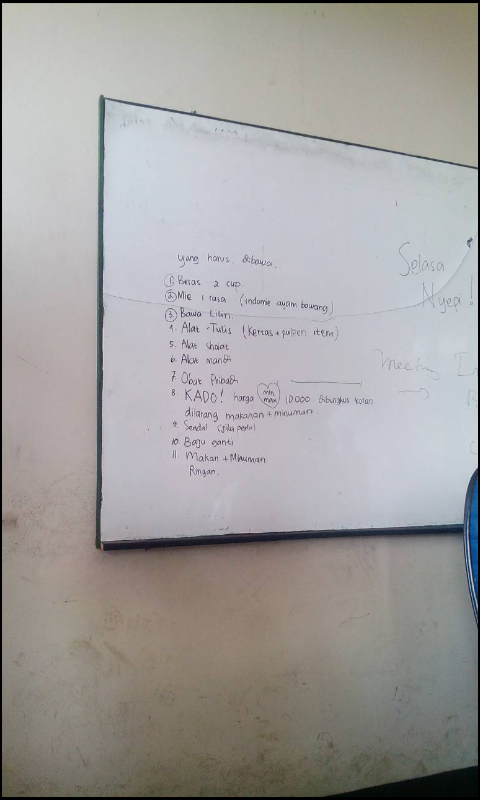 yang harus dibawa.
1. Beras 2 cup.
2. Mie 1 rasa (indomie ayam bawang)
3. Bawa Lilin.
4. Alat - Tulis (Kertas + pulpen item)
5. Alat shalat
6. Alat mandi
7. Obat Pribadi
8. KADO! harga min max 10.000 dibungkus koran
dilarang makanan + minuman
9. Sendal (jika perlu)
10. Baju ganti
11. Makan + Minuman
Ringan.
Selasa
Nyepi!
Meeting
→